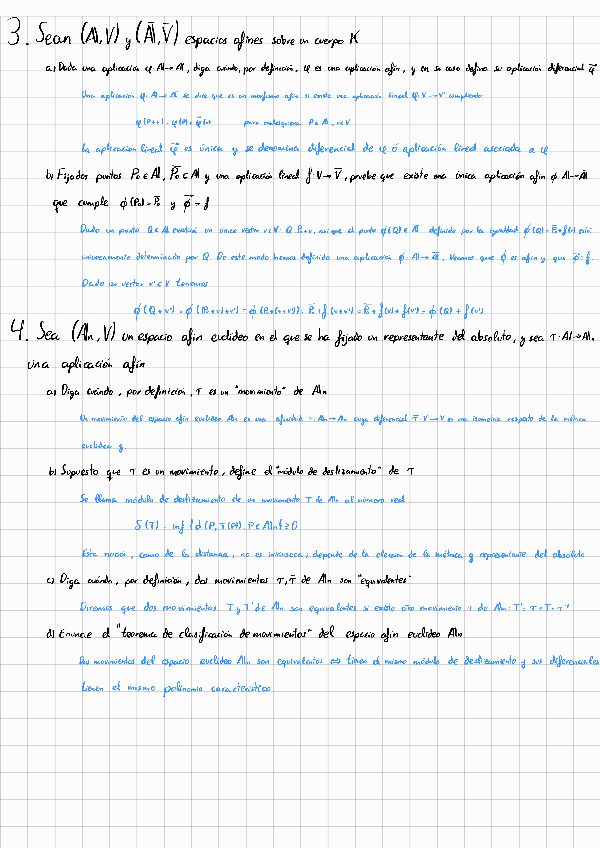 3. Sean (A,V) y (Ā,V̄) espacios afines sobre un cuerpo K
a) Dada una aplicación φ: A→Ā, diga cuándo, por definición, φ es una aplicación afín, y en su caso defina su aplicación diferencial φ⃗
Una aplicación φ: A→Ā se dice que es un morfismo afín si existe una aplicación lineal φ⃗: V→V̄ cumpliendo:
φ(P+v) = φ(P) + φ⃗(v) para cualesquiera P∈A, v∈V
La aplicación lineal φ⃗ es única y se denomina diferencial de φ ó aplicación lineal asociada a φ
b) Fijados puntos P₀∈A, P̄₀∈Ā y una aplicación lineal f: V→V̄, pruebe que existe una única aplicación afín ϕ: A→Ā
que cumple ϕ(P₀)=P̄₀ y ϕ⃗=f
Dado un punto Q∈A existirá un único vector v∈V: Q=P₀+v, así que el punto ϕ(Q)∈Ā definido por la igualdad ϕ(Q)=P̄₀+f(v) está
unívocamente determinado por Q. De este modo hemos definido una aplicación ϕ: A→Ā. Veamos que ϕ es afín y que ϕ⃗=f.
Dado un vector v'∈V tenemos
ϕ(Q+v') = ϕ(P₀+v+v') = ϕ(P₀+(v+v')) = P̄₀+f(v+v') = P̄₀+f(v)+f(v') = ϕ(Q)+f(v')
4. Sea (Aₙ,V) un espacio afín euclídeo en el que se ha fijado un representante del absoluto, y sea τ: Aₙ→Aₙ
una aplicación afín
a) Diga cuándo, por definición, τ es un "movimiento" de Aₙ
Un movimiento del espacio afín euclídeo Aₙ es una afinidad τ: Aₙ→Aₙ cuya diferencial τ⃗: V→V es una isometría respecto de la métrica
euclídea g.
b) Supuesto que τ es un movimiento, define el "módulo de deslizamiento" de τ
Se llama módulo de deslizamiento de un movimiento τ de Aₙ al número real
δ(τ) = inf {d(P,τ(P)): P∈Aₙ} ≥ 0
Esta noción, como de la distancia, no es intrínseca; depende de la elección de la métrica g representante del absoluto
c) Diga cuándo, por definición, dos movimientos τ, τ̄ de Aₙ son "equivalentes"
Diremos que dos movimientos τ y τ' de Aₙ son equivalentes si existe otro movimiento
d) Enuncie el "teorema de clasificación de movimientos" del espacio afín euclídeo Aₙ
Dos movimientos del espacio euclídeo Aₙ son equivalentes ⇔ tienen el mismo módulo de deslizamiento y sus diferenciales
tienen el mismo polinomio característico